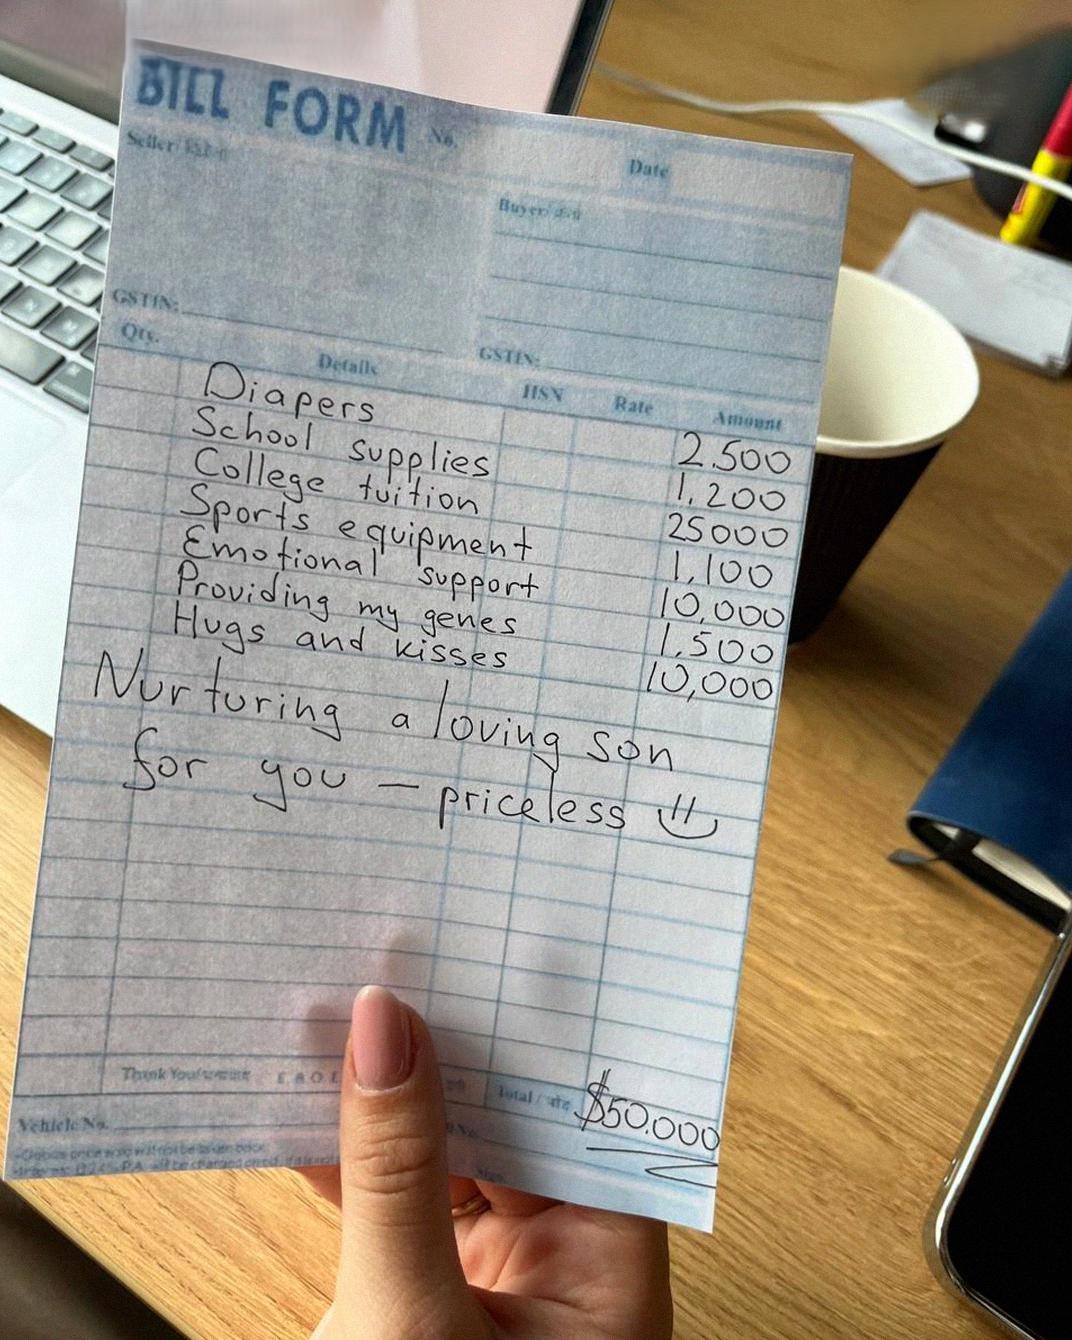 BILL FORM No.
Date
Seller
Buyer
GSTIN:
GSTIN:
Qty. Details HSN Rate Amount
Diapers 2.500
School supplies 1,200
College tuition 25000
Sports equipment 1,100
Emotional support 10,000
Providing my genes 1.500
Hugs and kisses 10,000
Nurturing a loving son
for you — priceless
Thank You! E & O E
Total / जोड़ $50.000
Vehicle No.